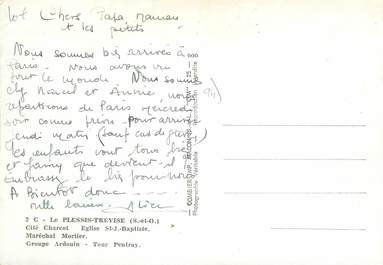 Chers Papa, maman
et les petits
Nous sommes bien arrivés à
Paris. Nous avons vu
tout le monde. Nous sommes
chez Marcel et Annie, nous
repartirons de Paris mercredi
soir comme prévu pour arriver
jeudi matin (sauf cas de grève)
les enfants vont tous bien
et fanny que devient-il
embrasse le bis pour nous
A Bientôt donc
mille baisers Alice
2 C - Le PLESSIS-TREVISE (S.-et-O.)
Cité Charcot Eglise St-J.-Baptiste,
Maréchal Mortier,
Groupe Ardouin - Tour Pentray.
COMBIER IMP. MACON
Photographie Véritable